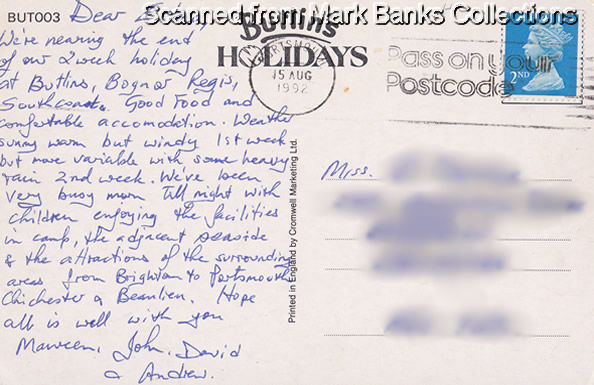 Scanned from Mark Banks Collections
BUT003
Butlins
HOLIDAYS
PORTSMOUTH
15 AUG
1992
Pass on your
Postcode
2ND
Dear
We're nearing the end
of our 2 week holiday
at Butlins, Bognor Regis,
Southcoast. Good Food and
comfortable accomodation. Weather
sunny warm but windy 1st week
but more variable with some heavy
rain 2nd week. We've been
very busy morn till night with
children enjoying the facilities
in camp, the adjacent seaside
& the attractions of the surrounding
areas from Brighton to Portsmouth,
Chichester & Beaulieu. Hope
all is well with you
Maureen, John, David
& Andrew.
Printed in England by Cromwell Marketing Ltd.
Miss.